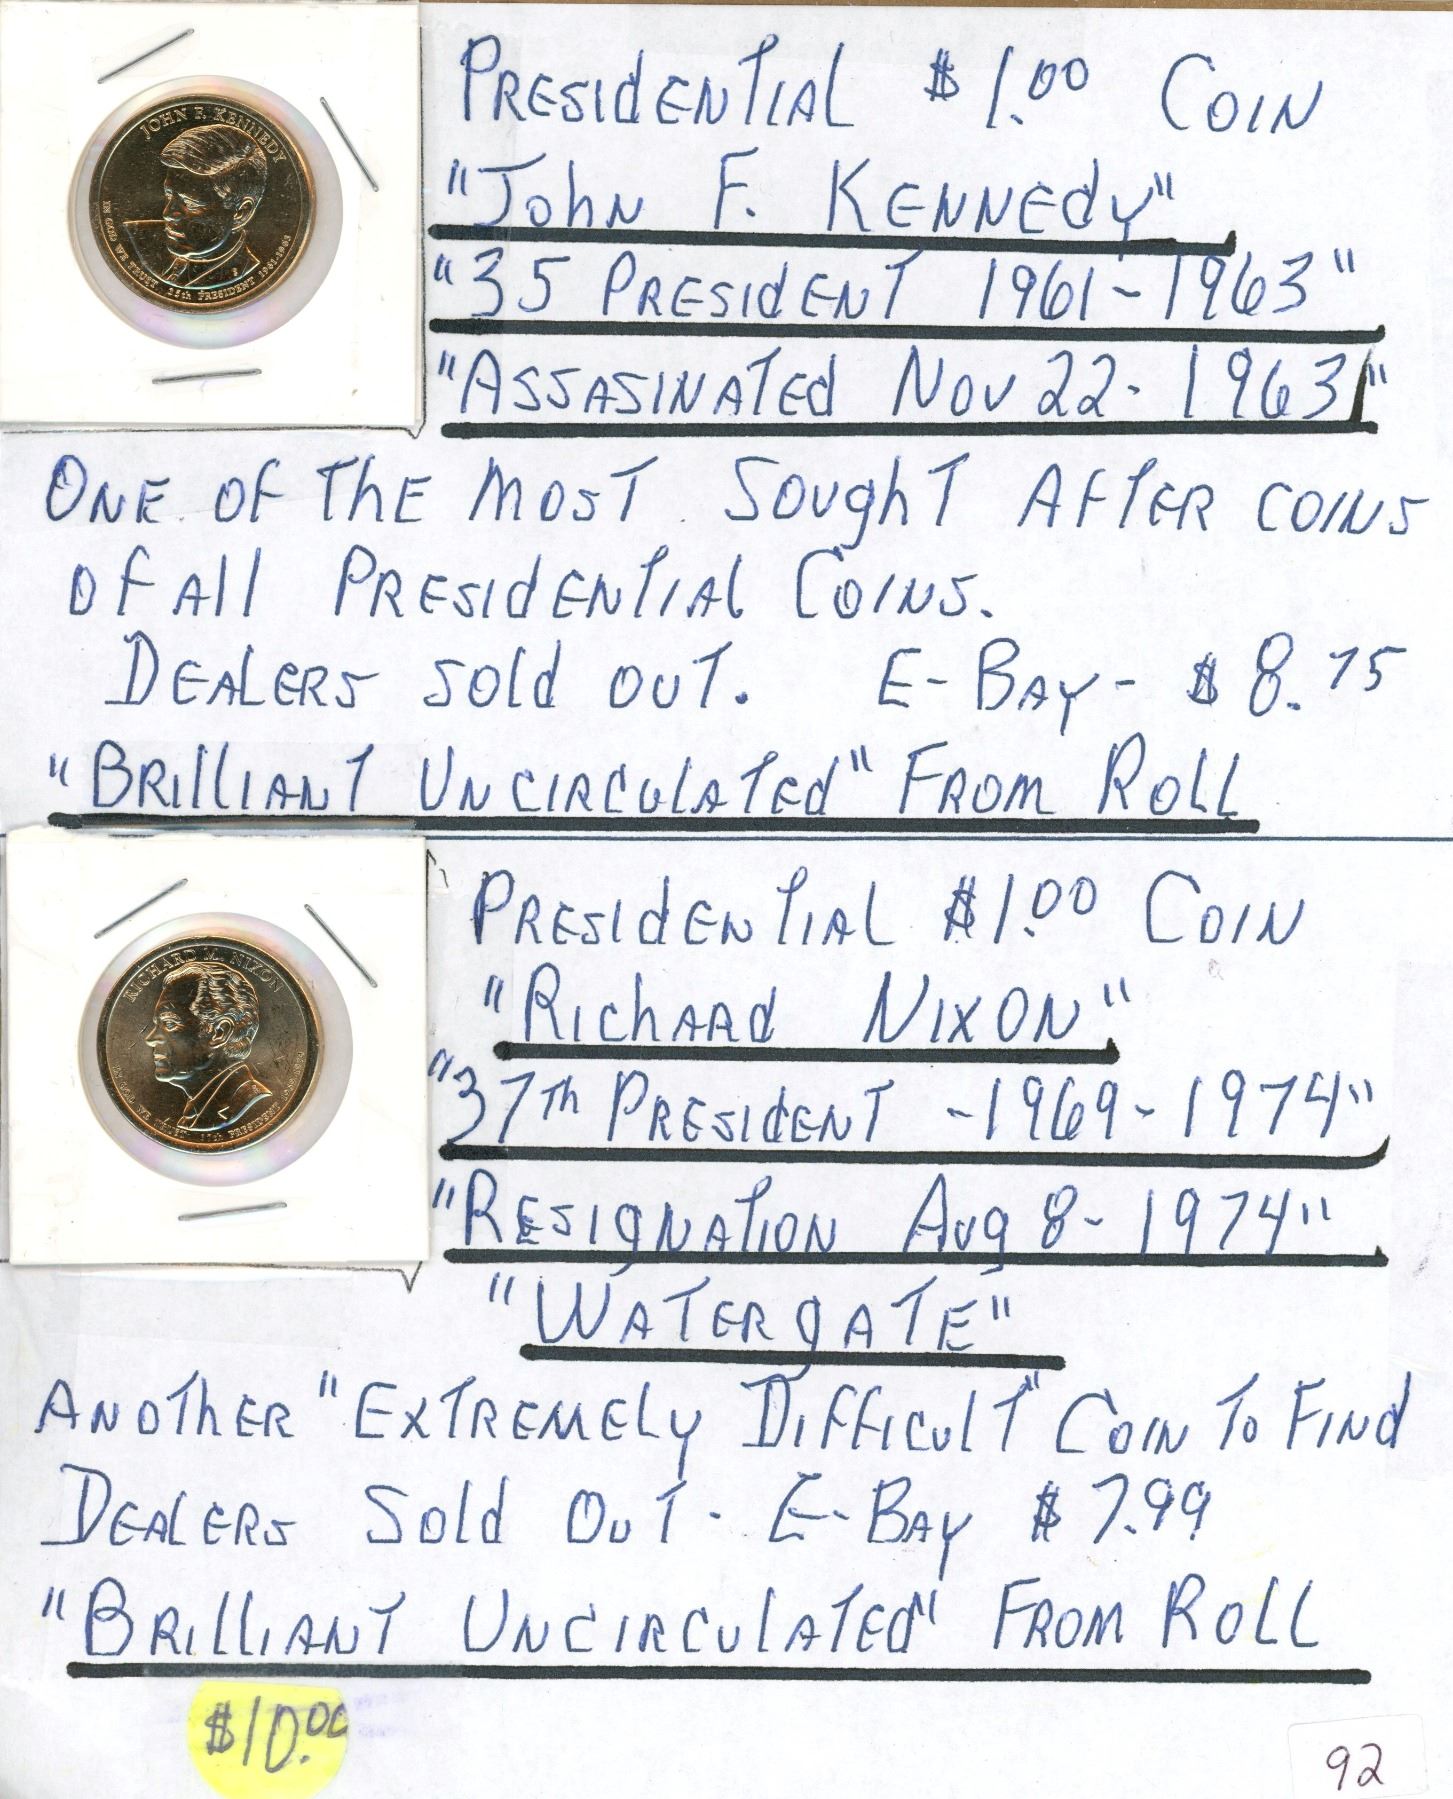 JOHN F. KENNEDY
IN GOD WE TRUST 35th PRESIDENT 1961-1963
PRESIdENTIAL $1.00 COIN
"JohN F. KENNEdy"
"35 PRESIdENT 1961-1963"
"ASSASINATEd Nov 22- 1963"
ONE OF ThE MOST Sought AFTER COINS
OF All PRESIdENTIAL COINS.
DEALERS Sold OUT. E-BAy- $8.75
"BRIllIANT UNCIRCULATEd" FROM ROLL
RICHARD M. NIXON
IN GOD WE TRUST 37th PRESIDENT 1969-1974
PRESIdENTIAL $1.00 COIN
"RIChARd NIXON"
"37Th PRESIdENT -1969-1974"
"RESIgNATION Aug 8- 1974"
"WATERgATE"
ANOThER "EXTREMELy DIFFICULT" COIN To FINd
DEALERS Sold OUT- E-BAy $7.99
"BRIllIANT UNCIRCULATEd" FROM ROLL
$10.00
92